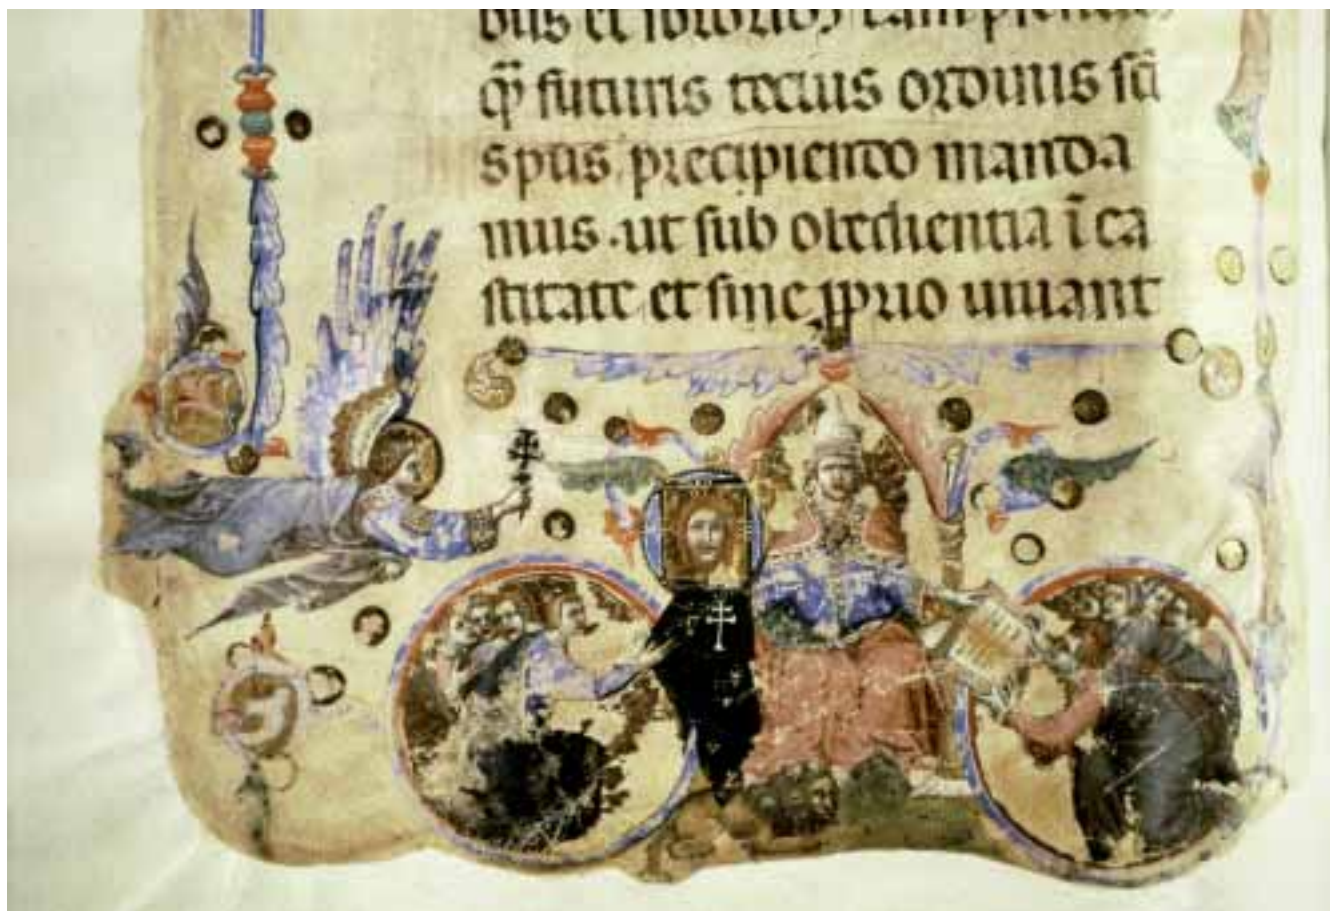 bus et tam
q̄ futuris tocius ordinis sc̄i
sp̄us precipiendo manda
mus · ut sub obedientia ī ca
stitate et sine ꝓprio uiuant